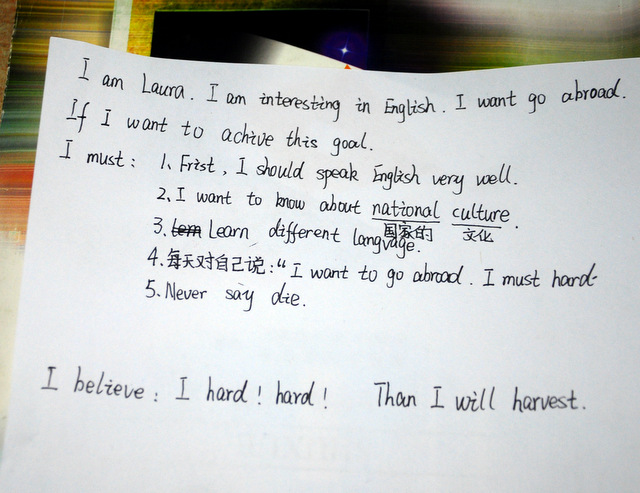 I am Laura. I am interesting in English. I want go abroad.
If I want to achive this goal.
I must: 1、Frist, I should speak English very well.
2、I want to know about national culture.
国家的 文化
3. Learn different langvage.
4.每天对自己说:“I want to go abroad. I must hard
5.Never say die.
I believe: I hard! hard! Than I will harvest.